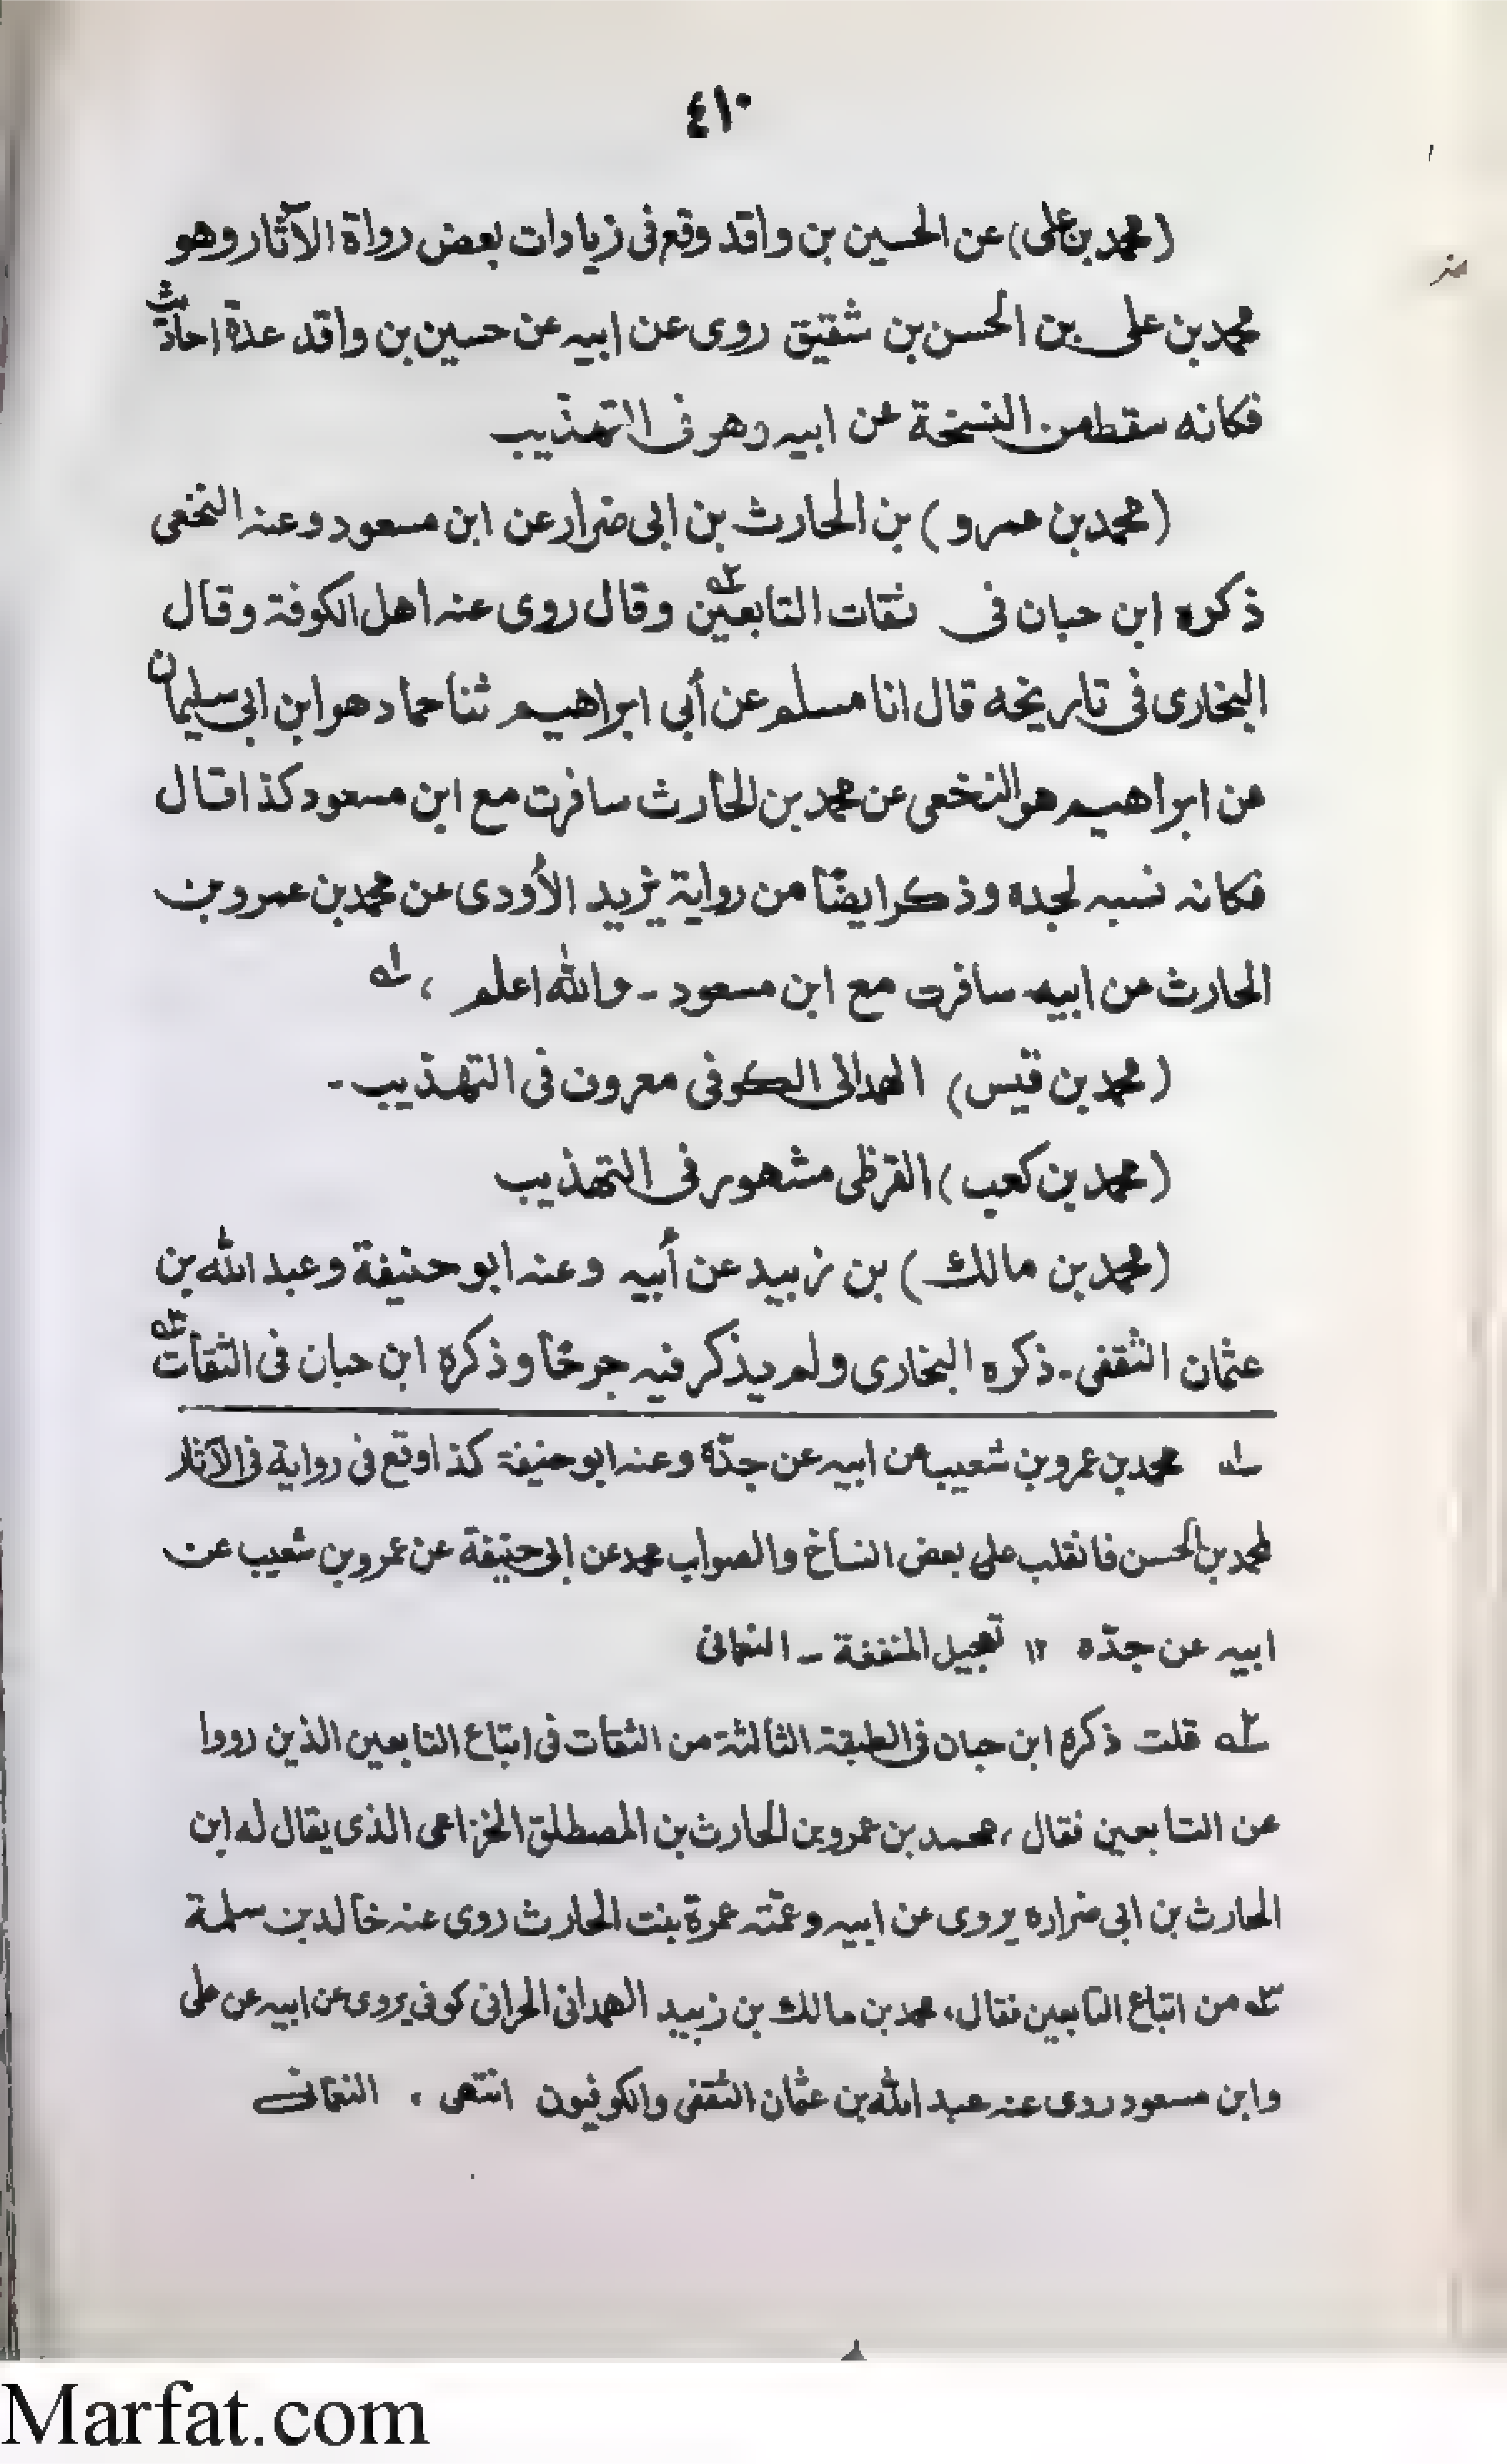 ٤١٠
(محمد بن على) عن الحسين بن واقد وقع فى زيادات بعض رواة الآثار وهو
محمد بن على بن الحسن بن شقيق روى عن ابيه عن حسين بن واقد عدة احاديث
فكانه سقط من النسخة عن ابيه وهو فى التهذيب
(محمد بن عمرو) بن الحارث بن ابى ضرار عن ابن مسعود وعنه النخعى
ذكره ابن حبان فى ثقات التابعين ٢ه وقال روى عنه اهل الكوفة وقال
البخارى فى تاريخه قال انا مسلم عن أبى ابراهيم ثنا حماد هو ابن ابى سليمان
عن ابراهيم هو النخعى عن محمد بن الحارث سافرت مع ابن مسعود كذا قال
فكانه نسبه لجده وذكر ايضًا من رواية يزيد الأودى عن محمد بن عمرو بن
الحارث عن ابيه سافرت مع ابن مسعود - والله اعلم ، ١ه
(محمد بن قيس) الهمدانى الكوفى معروف فى التهذيب -
(محمد بن كعب) القرظى مشهور فى التهذيب
(محمد بن مالك) بن زبيد عن أبيه وعنه ابو حنيفة وعبد الله بن
عثمان الثقفى - ذكره البخارى ولم يذكر فيه جرحًا وذكره ابن حبان فى الثقات ٣ه
١ه محمد بن عمرو بن شعيب عن ابيه عن جدّه وعنه ابو حنيفة كذا وقع فى رواية فى الآثار
لمحمد بن الحسن فانقلب على بعض النساخ والصواب محمد عن ابى حنيفة عن عمرو بن شعيب عن
ابيه عن جدّه ١٢ تعجيل المنفعة - النعمانى
٢ه قلت ذكره ابن حبان فى الطبقة الثالثة من الثقات فى اتباع التابعين الذين رووا
عن التابعين فقال ، محمد بن عمرو بن الحارث بن المصطلق الخزاعى الذى يقال له ابن
الحارث بن ابى ضراره يروى عن ابيه وعمّته عمرة بنت الحارث روى عنه خالد بن سلمة
٣ه من اتباع التابعين فقال ، محمد بن مالك بن زبيد الهمدانى الحرانى كوفى يروى عن ابيه عن على
وابن مسعود روى عنه عبد الله بن عثمان الثقفى والكوفيون انتهى ، النعمانى
Marfat.com